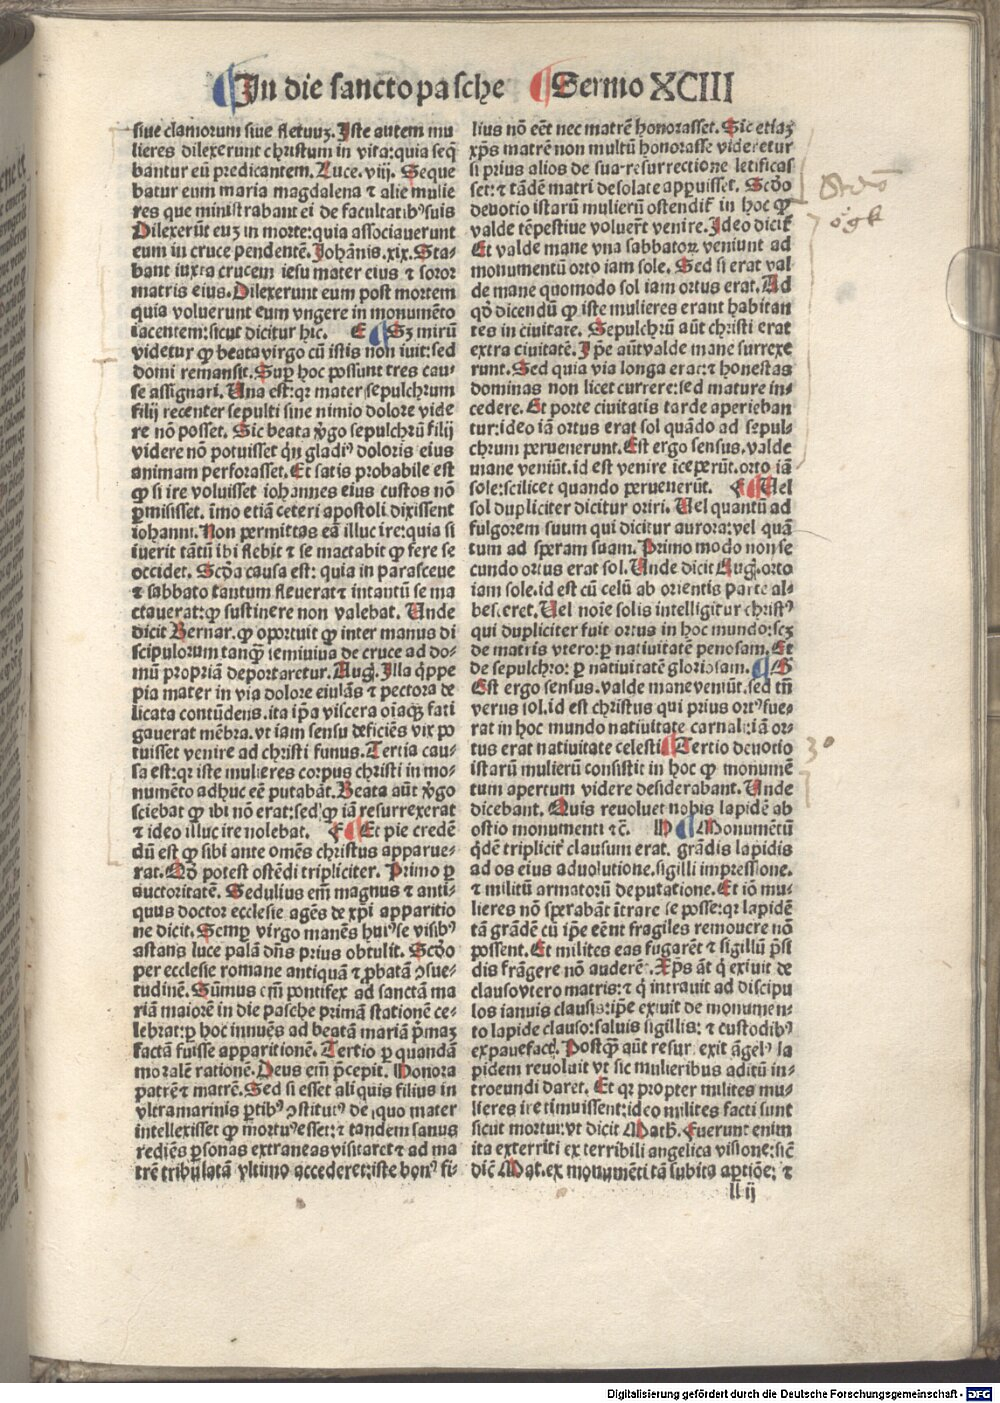 In die sancto pasche Sermo XCIII
siue clamorum siue fletuuꝫ. Iste autem mu
lieres dilexerunt christum in vita: quia seq̄
bantur eū predicantem. Luce. viij. Seque
batur eum maria magdalena ⁊ alie mulie
res que ministrabant ei de facultatibꝰ suis
Dilexerūt euꝫ in morte: quia associauerunt
eum in cruce pendentē. Johānis. xix. Sta-
bant iuxta crucem iesu mater eius ⁊ soror
matris eius. Dilexerunt eum post mortem
quia voluerunt eum vngere in monumēto
iacentem: sicut dicitur hic. E Sꝫ mirū
videtur ꝙ beata virgo cū istis non iuit: sed
domi remansit. Suꝑ hoc possunt tres cau-
se assignari. Una est: qꝛ mater sepulchrum
filij recenter sepulti sine nimio dolore vide
re nō posset. Sic beata v̓go sepulchrū filij
videre nōn potuisset qn̄ gladiꝰ doloris eius
animam perforasset. Et satis probabile est
ꝙ si ire voluisset iohannes eius custos nō
ꝑmisisset. imo etiā ceteri apostoli dixissent
iohanni. Non permittas eā illuc ire: quia si
iuerit tātū ibi flebit ⁊ se mactabit ꝙ fere se
occidet. Scd̓a causa est: quia in parasceue
⁊ sabbato tantum fleuerat ⁊ intantū se ma
ctauerat: ꝙ sustinere non valebat. Unde
dicit Bernar. ꝙ oportuit ꝙ inter manus di
scipulorum tanqꝫ semiuiua de cruce ad do-
mū propriā deportaretur. Aug. Illa q̇ppe
pia mater in via dolore eiulās ⁊ pectora de
licata contūdens. ita ip̄a viscera oīaqꝫ fati
gauerat mēbra. vt iam sensu deficiēs vix po
tuisset venire ad christi funus. Tertia cau-
sa est: qꝛ iste mulieres corpus christi in mo-
numēto adhuc eē putabāt. Beata aūt v̓go
sciebat ꝙ ibi nō erat: sed ꝙ iā resurrexerat
⁊ ideo illuc ire nolebat. F Et pie credē
dū est ꝙ sibi ante omēs christus apparue-
rat. Qd̓ potest ostēdi tripliciter. Primo ꝑ
auctoritatē. Sedulius em̄ magnus ⁊ anti-
quus doctor ecclesie agēs de xp̄i apparitio
ne dicit. Semꝑ virgo manēs huiꝰ se visibꝰ
astans luce palā dn̄s prius obtulit. Scd̓o
per ecclesie romane antiquā ⁊ ꝓbatā ɔsue-
tudinē. Sūmus em̄ pontifex ad sanctā ma
riā maiorē in die pasche primā stationē ce-
lebrat: ꝑ hoc innuēs ad beatā mariā p̓maꝫ
factā fuisse apparitionē. Tertio ꝑ quandā
moralē rationē. Deus em̄ p̄cepit. Honora
patrē ⁊ matrē. Sed si esset aliquis filius in
vltramarinis ꝑtibꝰ ɔstitutꝰ de quo mater
intellexisset ꝙ mortuꝰ esset: ⁊ tandem sanus
rediēs ꝑsonas extraneas visitaret ⁊ ad ma
trē tribulatā vltimo accederet: iste bonꝰ fi-
lius nō eēt nec matrē honorasset. Sic etiaꝫ
xp̄s matrē non multū honorasse videretur
si prius alios de sua resurrectione letificas
set: ⁊ tādē matri desolate appuisset. Scd̓o
deuotio istarū mulierū ostendit̉ in hoc ꝙ
valde tēpestiue voluerūt venire. Ideo dicit̉
Et valde mane vna sabbatoꝝ veniunt ad
monumentū orto iam sole. Sed si erat val
de mane quomodo sol iam ortus erat. Ad
qd̓ dicendū ꝙ iste mulieres erant habitan
tes in ciuitate. Sepulchrū aūt christi erat
extra ciuitatē. Ip̄e aūt valde mane surrexe
runt. Sed quia via longa erat: ⁊ honestas
dominas non licet currere: sed mature in-
cedere. Et porte ciuitatis tarde aperieban
tur: ideo iā ortus erat sol quādo ad sepul-
chrum peruenerunt. Est ergo sensus. valde
mane veniūt. id est venire iceperūt. orto iā
sole: scilicet quando peruenerūt. Uel
sol dupliciter dicitur oriri. Uel quantū ad
fulgorem suum qui dicitur aurora: vel quā
tum ad speram suam. Primo modo non se
cundo ortus erat sol. Unde dicit Aug. orto
iam sole. id est cū celū ab orientis parte al-
besceret. Uel noīe solis intelligitur christꝰ
qui dupliciter fuit ortus in hoc mundo: scꝫ
de matris vtero: ꝑ natiuitatē penosam. Et
de sepulchro: ꝑ natiuitatē gloriosam. G
Est ergo sensus. valde mane veniūt. sed tn̄
verus sol. id est christus qui prius ortꝰ fue-
rat in hoc mundo natiuitate carnali: iā or-
tus erat natiuitate celesti. Tertio deuotio
istarū mulierū consistit in hoc ꝙ monumē
tum apertum videre desiderabant. Unde
dicebant. Quis reuoluet nobis lapidē ab
ostio monumenti ⁊c̄. H Monumētū
q̇dē triplicit̉ clausum erat. grādis lapidis
ad os eius aduolutione. sigilli impressione.
⁊ militū armatorū deputatione. Et iō mu-
lieres nō sperabāt ītrare se posse: qꝛ lapidē
tā grādē cū ip̄e eēnt fragiles remouere nō
possent. Et milites eas fugarēt ⁊ sigillū p̄si
dis frāgere nō auderēt. Xp̄s āt q̇ exiuit de
clauso vtero matris: ⁊ q̇ intrauit ad discipu
los ianuis clausis: ip̄e exiuit de monumen-
to lapide clauso: saluis sigillis: ⁊ custodibꝰ
expauefact̉. Postqꝫ aūt resurrexit āgelꝰ la
pidem reuoluit vt sic mulieribus aditū in-
troeundi daret. Et qꝛ propter milites mu-
lieres ire timuissent: ideo milites facti sunt
sicut mortui: vt dicit Math. Fuerunt enim
ita exterriti ex terribili angelica visione: sic̄
dic̄ Mat. ex monumēti tā subita aꝑtiōe: ⁊
ll ij
3°
Digitalisierung gefördert durch die Deutsche Forschungsgemeinschaft - DFG